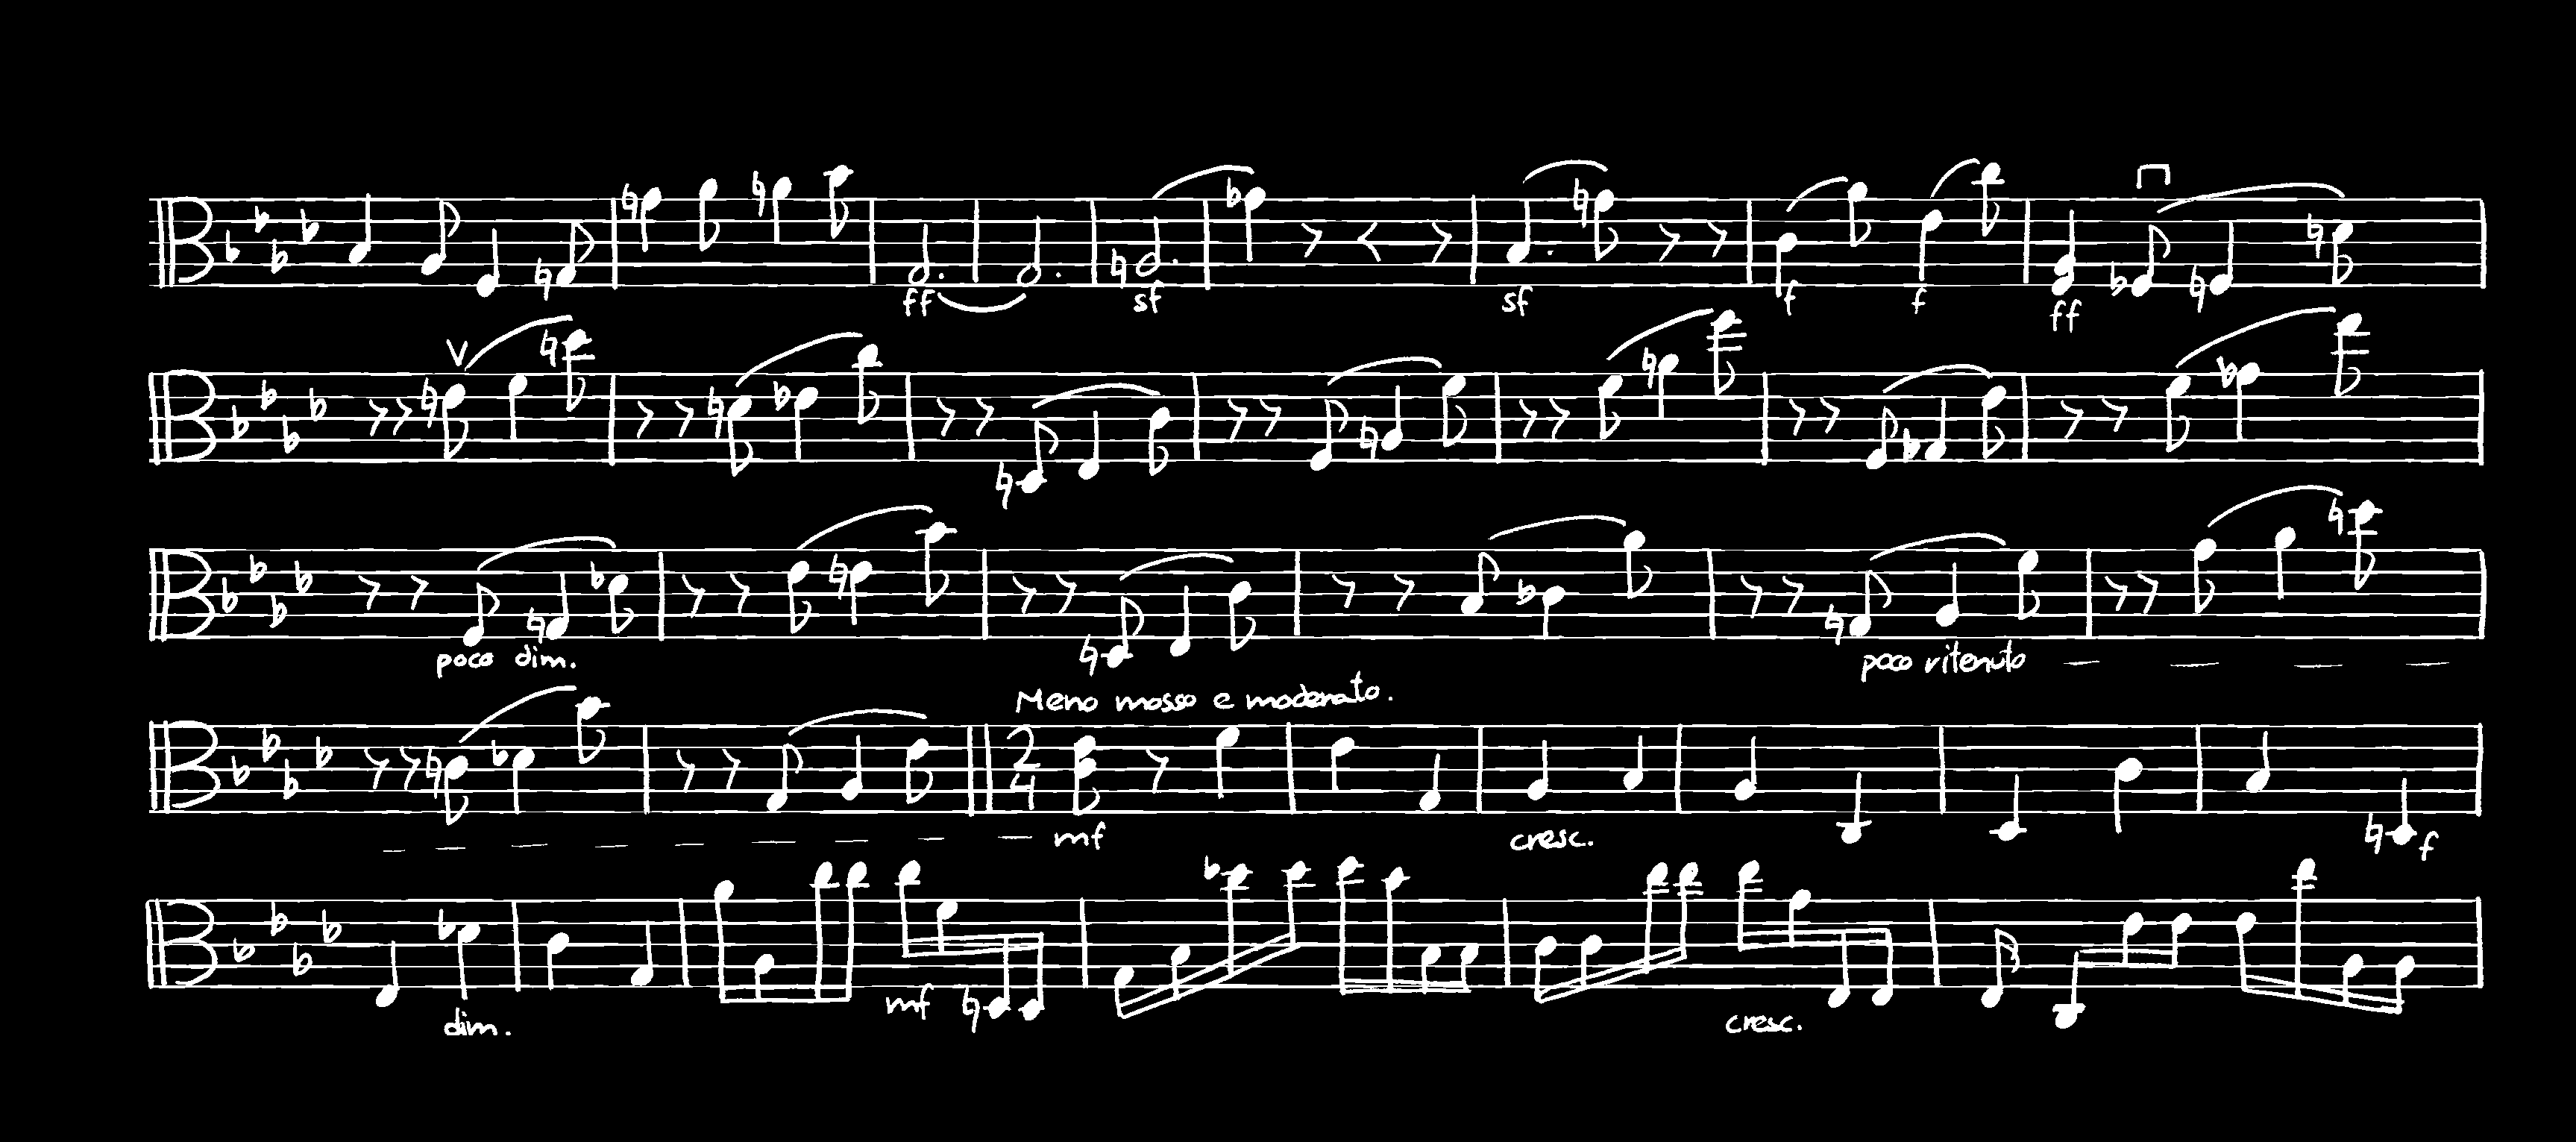 ff sf sf f f ff
V
poco dim. poco ritenuto
Meno mosso e moderato.
2
4
mf cresc. f
dim. mf cresc.